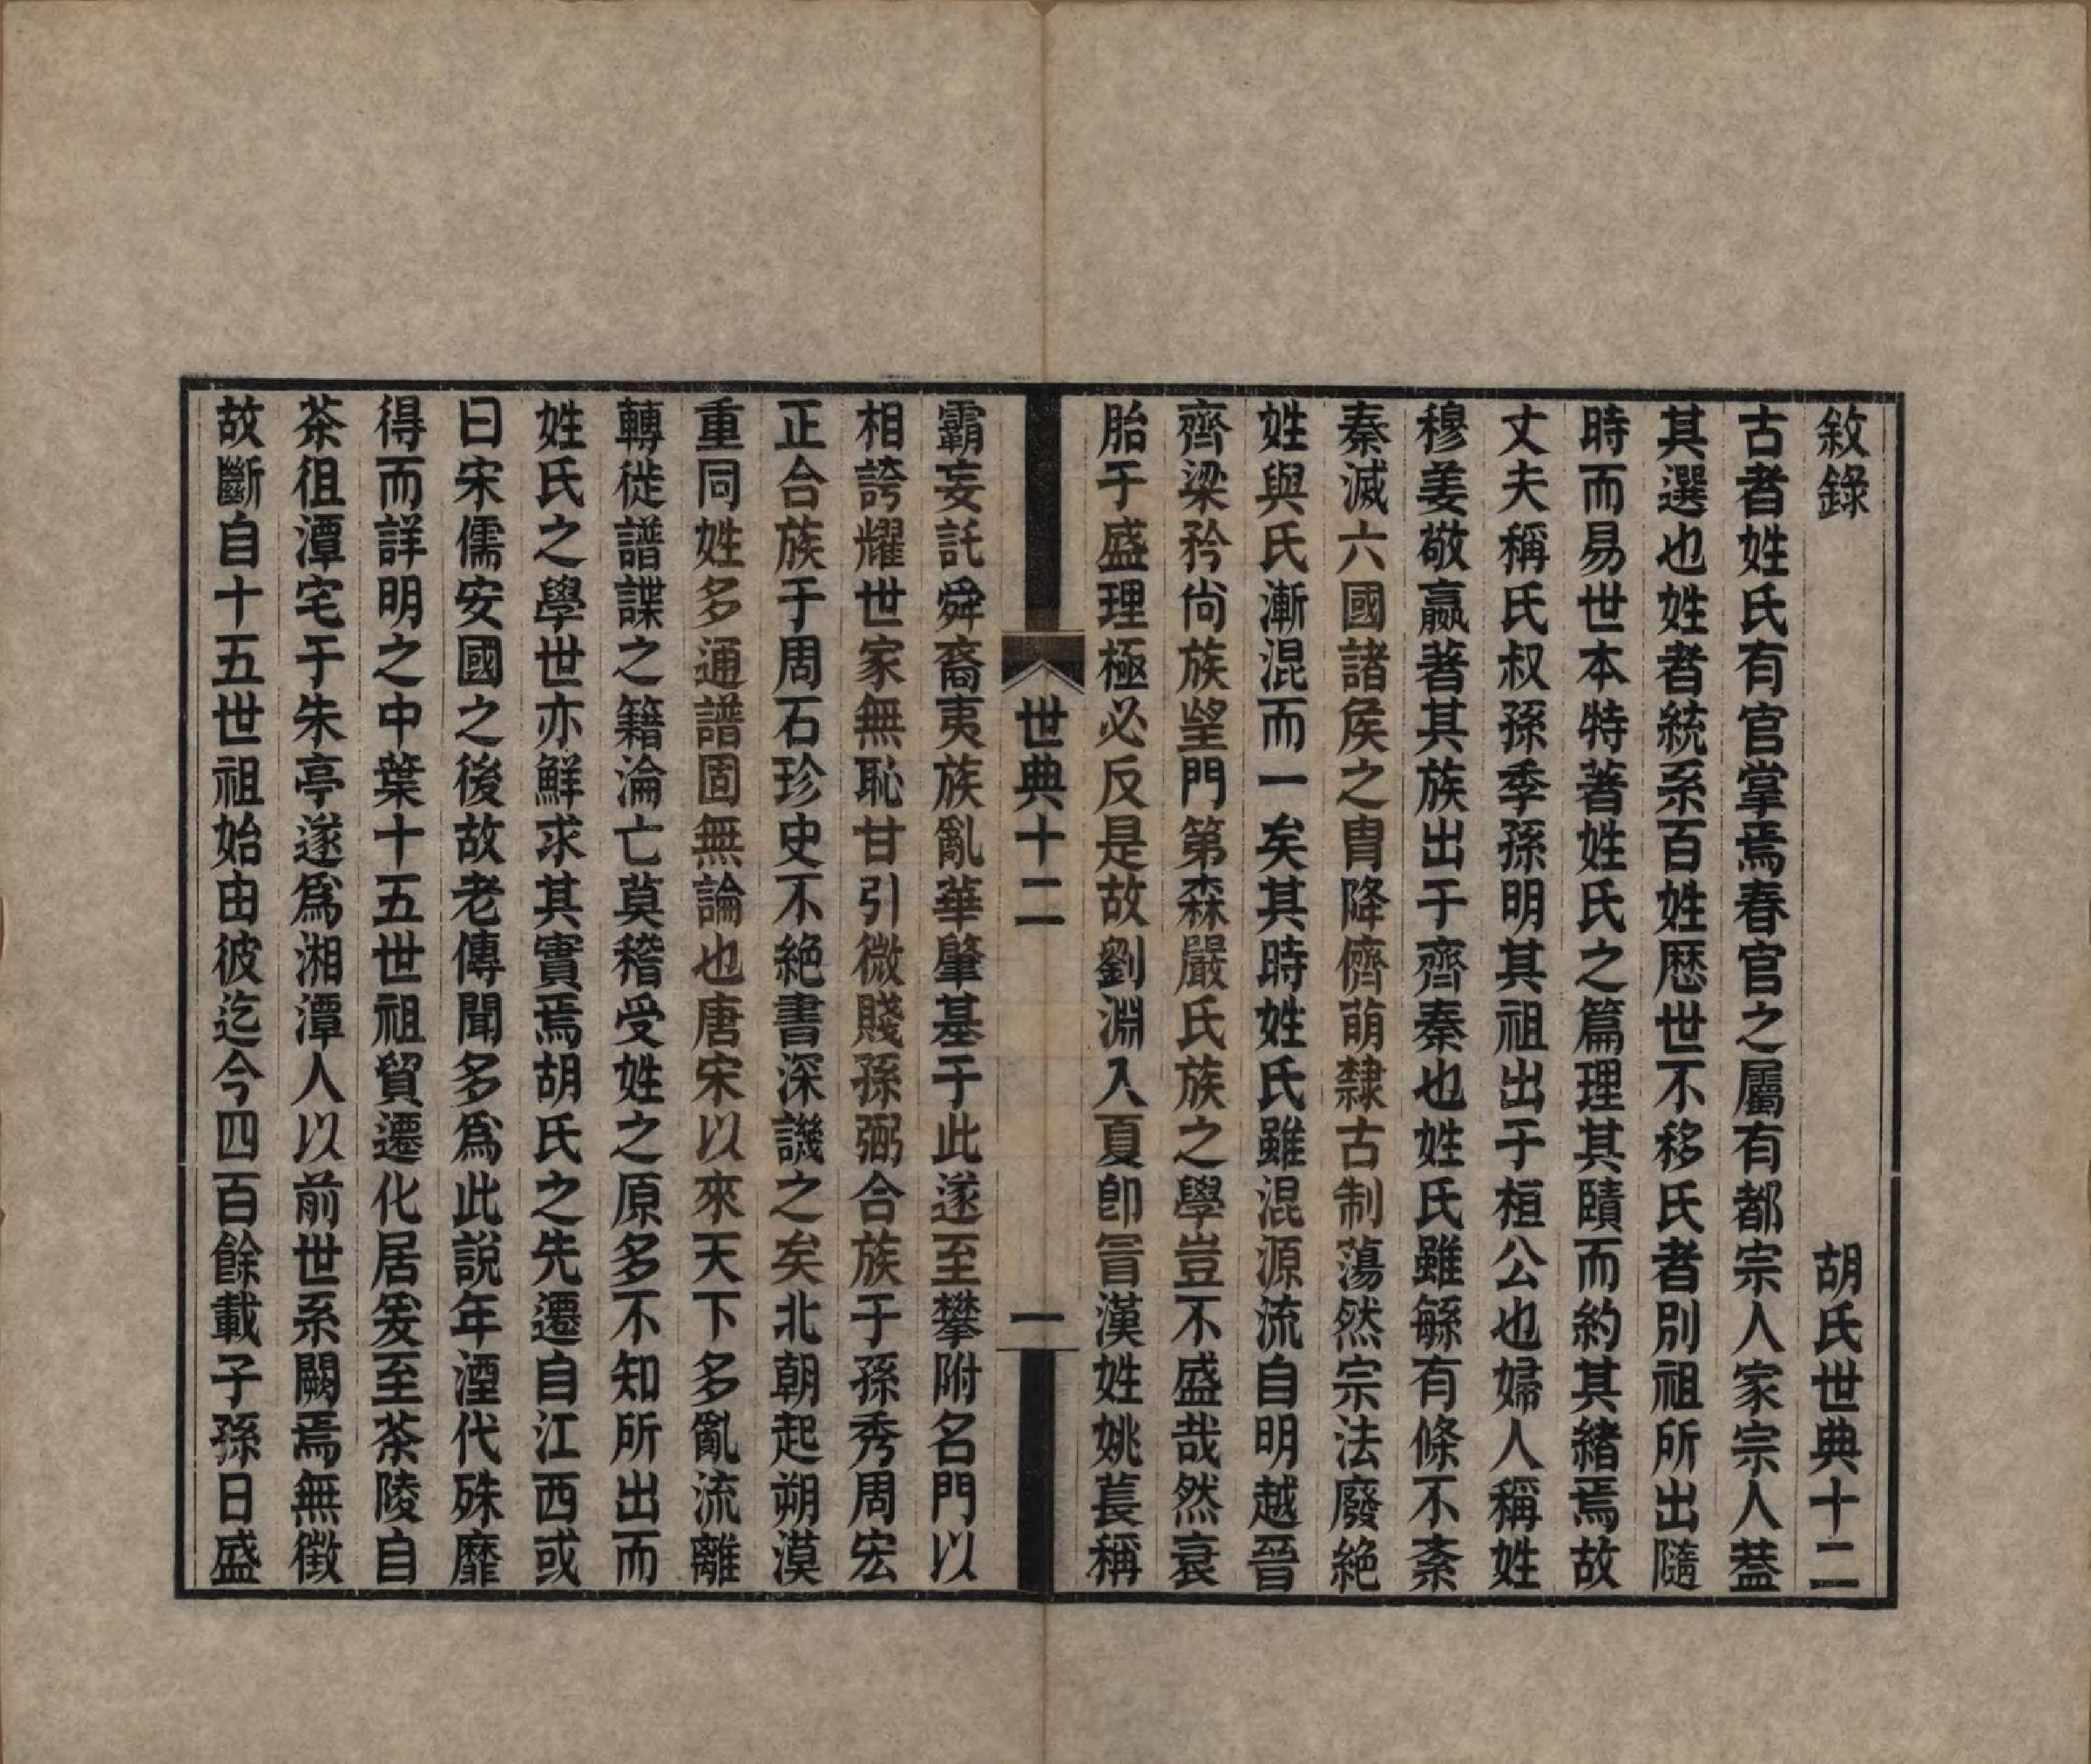 敘錄　胡氏世典十二
古者姓氏有官掌焉春官之屬有都宗人家宗人葢
其選也姓者統系百姓歷世不移氏者別祖所出隨
時而易世本特著姓氏之篇理其賾而約其緒焉故
丈夫稱氏叔孫季孫明其祖出于桓公也婦人稱姓
穆姜敬嬴著其族出于齊秦也姓氏雖繇有條不紊
秦滅六國諸矦之胄降儕萌隸古制蕩然宗法廢絕
姓與氏漸混而一矣其時姓氏雖混源流自明越晉
齊梁矜尙族望門第森嚴氏族之學豈不盛哉然衰
胎于盛理極必反是故劉淵入夏卽冒漢姓姚萇稱
世典十二　一
霸妄託舜裔夷族亂華肇基于此遂至攀附名門以
相誇耀世家無恥甘引微賤孫弼合族于孫秀周宏
正合族于周石珍史不絕書深譏之矣北朝起朔漠
重同姓多通譜固無論也唐宋以來天下多亂流離
轉徙譜諜之籍淪亡莫稽受姓之原多不知所出而
姓氏之學世亦鮮求其實焉胡氏之先遷自江西或
曰宋儒安國之後故老傳聞多爲此說年湮代殊靡
得而詳明之中葉十五世祖貿遷化居爰至茶陵自
茶徂潭宅于朱亭遂爲湘潭人以前世系闕焉無徵
故斷自十五世祖始由彼迄今四百餘載子孫日盛